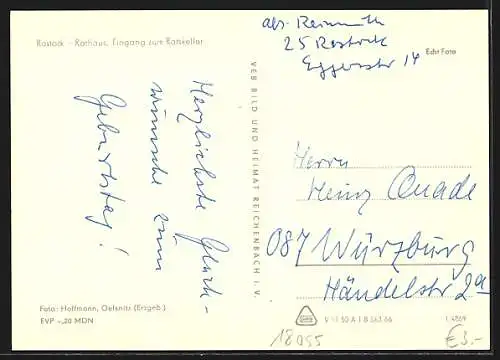 Rostock - Rathaus, Eingang zum Ratskeller
Herzlichste Glück-
wünsche zum
Geburtstag!
Foto: Hoffmann, Oelsnitz (Erzgeb.)
EVP -,20 MDN
VEB BILD UND HEIMAT REICHENBACH I. V.
abs. Reinmuth
25 Rostock
Eggersstr 14
Echt Foto
Herrn
Heinz Quade
087 Würzburg
Händelstr 2a
V 11 50 A 1 B 363 66
18055
€3.-